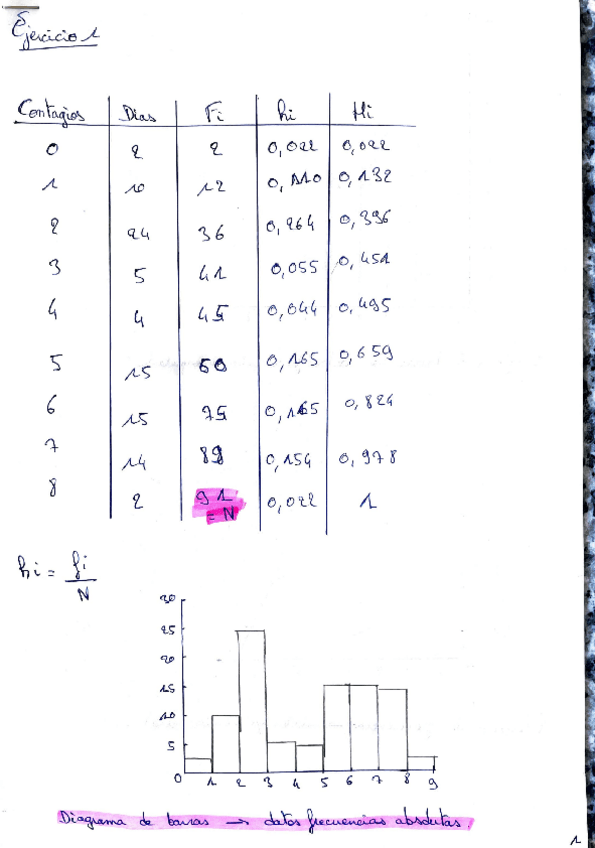 Ejercicio 1
Contagios Dias Fi hi Hi
0 2 2 0,022 0,022
1 10 12 0,110 0,132
2 24 36 0,264 0,396
3 5 41 0,055 0,451
4 4 45 0,044 0,495
5 15 60 0,165 0,659
6 15 75 0,165 0,824
7 14 89 0,154 0,978
8 2 91 0,022 1
= N
hi = fi
N
30
25
20
15
10
5
0 1 2 3 4 5 6 7 8 9
Diagrama de barras → datos frecuencias absolutas.
1